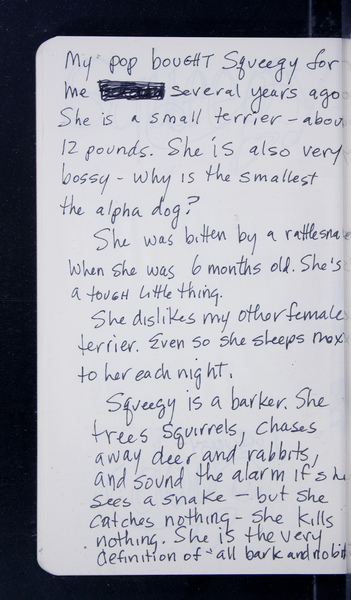 My pop bought Squeegy for
me several years ago
She is a small terrier - abou
12 pounds. She is also very
bossy - why is the smallest
the alpha dog?
She was bitten by a rattlesnake
when she was 6 months old. She's
a tough little thing.
She dislikes my other female
terrier. Even so she sleeps next
to her each night.
Squeegy is a barker. She
trees squirrels, chases
away deer and rabbits,
and sound the alarm if sh
sees a snake - but she
catches nothing - she kills
nothing. She is the very
definition of "all bark and no bit